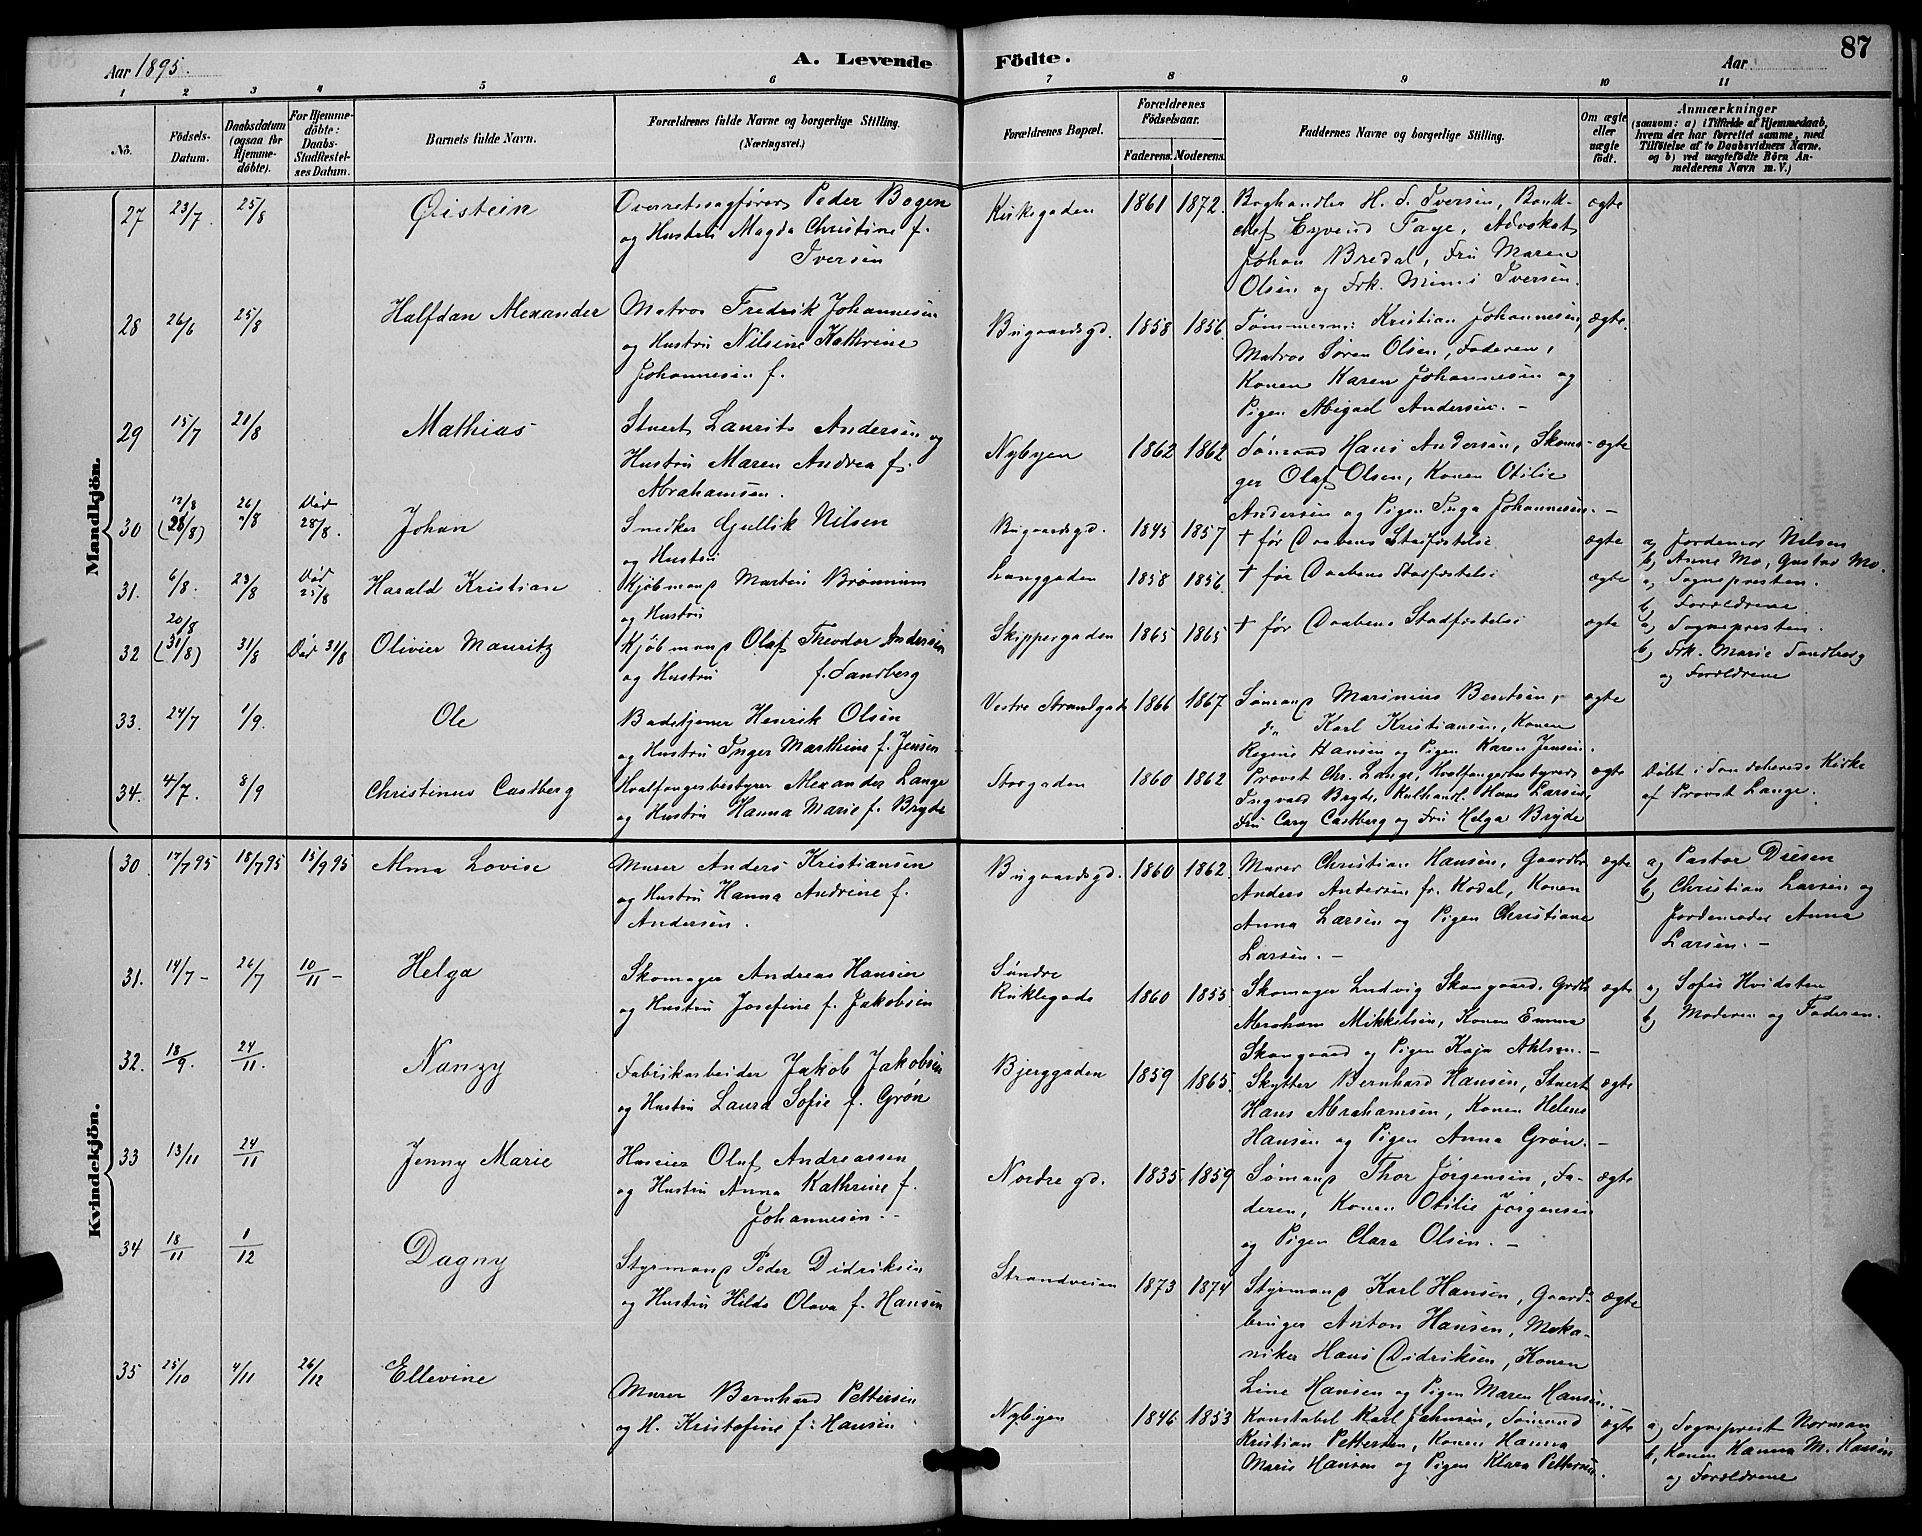 Aar 1895.
A. Levende
Födte.
Aar
87
1 2 3 4 5 6 7 8 9 10 11
No.
Födsels-Datum.
Daabsdatum (ogsaa for Hjemme-döbte).
For Hjemme-döbte: Daabs-Stadfæstel-ses Datum.
Barnets fulde Navn.
Forældrenes fulde Navne og borgerlige Stilling.
(Næringsvei.)
Forældrenes Bopæl.
Forældrenes Födselsaar.
Faderens. Moderens.
Faddernes Navne og borgerlige Stilling.
Om ægte eller uægte födt.
Anmærkninger
(saasom: a) i Tilfælde af Hjemmedaab, hvem der har forrettet samme, med Tilföielse af to Daabsvidners Navne, og b) ved uægtefödte Börn An-melderens Navn m. V.)
Mandkjön.
27 23/7 25/8 Øistein Overretssagfører Peder Bogen Kirkegaden 1861 1872. Boghandler H. S. Iversen, Bank- ægte
og Hustru Magda Christine f. chef Eyvind Faye, Advokat
Iversen Johan Bredal, Fru Maren
Olsen og Frk. Mimi Iversen.
28 26/6 25/8 Halfdan Alexander Matros Fredrik Johannesen Bugaardsgd. 1858 1856. Tømmerm: Kristian Johannesen, ægte.
og Hustru Nilsine Kathrine Matros Søren Olsen, Faderen,
Johannesen f. Konen Karen Johannesen og
Pigen Abigael Andersen. –
29 15/7 21/8 Mathias Stuert Laurits Andersen og Nybyen 1862 1862 Sømand Hans Andersen, Skoma- ægte
Hustru Maren Andrea f. ger Olaf Olsen, Konen Otilie
Abrahamsen. Andersen og Pigen Inga Johannesen. –
30 12/8 26/8 Død 28/8. Johan Snedker Gullik Nilsen Bugaardsgd. 1845 1857 † før Daabens Stadfæstelse ægte a) Jordemor Nilsen
og Hustru b) Anne Mo, Gustav Mo.
31. 6/8. 23/8 Død 25/8 Harald Kristian Kjøbmand Martin Brønnum Langgaden 1858 1856. † før Daabens Stadfæstelse ægte a) Sognepresten.
og Hustru b) Forældrene.
32 20/8 (31/8) 31/8 Død 31/8 Olivier Mauritz Kjøbmand Olaf Theodor Andersen Skippergaden 1865 1865 † før Daabens Stadfæstelse ægte a) Sognepresten.
og Hustru f. Sandberg b) Frk. Marie Sandberg
og Forældrene
33. 24/7 1/9. Ole Badetjener Henrik Olsen Vestre Strandgade 1866 1867 Sømand Marinius Bentsen, ægte
og Hustru Inger Marthine f. Jensen do Karl Kristiansen, Konen
Regine Hansen og Pigen Karen Jensen.
34. 4/7. 8/9 Christinus Castberg Hvalfangerbestyrer Alexander Lange Storgaden 1860 1862 Provst Chr. Lange, Hvalfangerbestyrer ægte Døbt i Sandeherred Kirke
og Hustru Hanna Marie f. Bryde Ingvald Bryde, Kulhandl. Hans Larsen, af Provst Lange.
Fru Cary Castberg og Fru Helga Bryde
Kvindekjön.
30 17/7 95 18/7 95 15/9 95 Alma Lovise Murer Anders Kristiansen Bugaardsgd. 1860 1862. Murer Christian Hansen, Gaardbr ægte a) Pastor Diesen
og Hustru Hanna Andrine f. Anders Andersen fr. Kodal, Konen b) Christian Larsen og
Andersen. Anna Larsen og Pigen Christiane Jordemoder Anna
Larsen. – Larsen. –
31. 14/7 – 26/7 10/11 – Helga Skomager Andreas Hansen Søndre 1860 1855 Skomager Ludvig Skaugaard, Grdbr ægte a) Sofie Hvidsten
og Hustru Josefine f. Jakobsen Kirkegade Abraham Mikkelsen, Konen Emma b) Moderen og Faderen.
Skaugaard og Pigen Kaja Ahlsen. –
32. 18/9 24/11 Nanzy Fabrikarbeider Jakob Jakobsen Bjerggaden 1859 1865. Skytter Bernhard Hansen, Stuert ægte
og Hustru Laura Sofie f. Grøn Hans Abrahamsen, Konen Helene
Hansen og Pigen Anna Grøn. –
33 13/11 24/11 Jenny Marie Huseier Oluf Andreassen Nordre gd. 1835 1859 Sømand Thor Jørgensen, Fa- ægte
og Hustru Anna Kathrine f. deren, Konen Otilie Jørgensen
Johannesen. – og Pigen Clara Olsen. –
34 18/11 1/12 Dagny Styrmand Peder Didriksen Strandveien 1873 1874 Styrmand Karl Hansen, Gaard- ægte
og Hustru Hilda Olava f. Hansen bruger Anton Hansen, Meka-
niker Hans Didriksen, Konen
Line Hansen og Pigen Maren Hansen.
35 25/10 4/11 26/12 Ellevine Murer Bernhard Pettersen Nybyen 1846 1853 Konstabel Karl Jahnsen, Sømand ægte a) Sogneprest Norman
og H. Kristofine f. Hansen Kristian Pettersen, Konen Hanna b, Konen Hanna M. Hansen
Marie Hansen og Pigen Klara Pettersen. og Forældrene